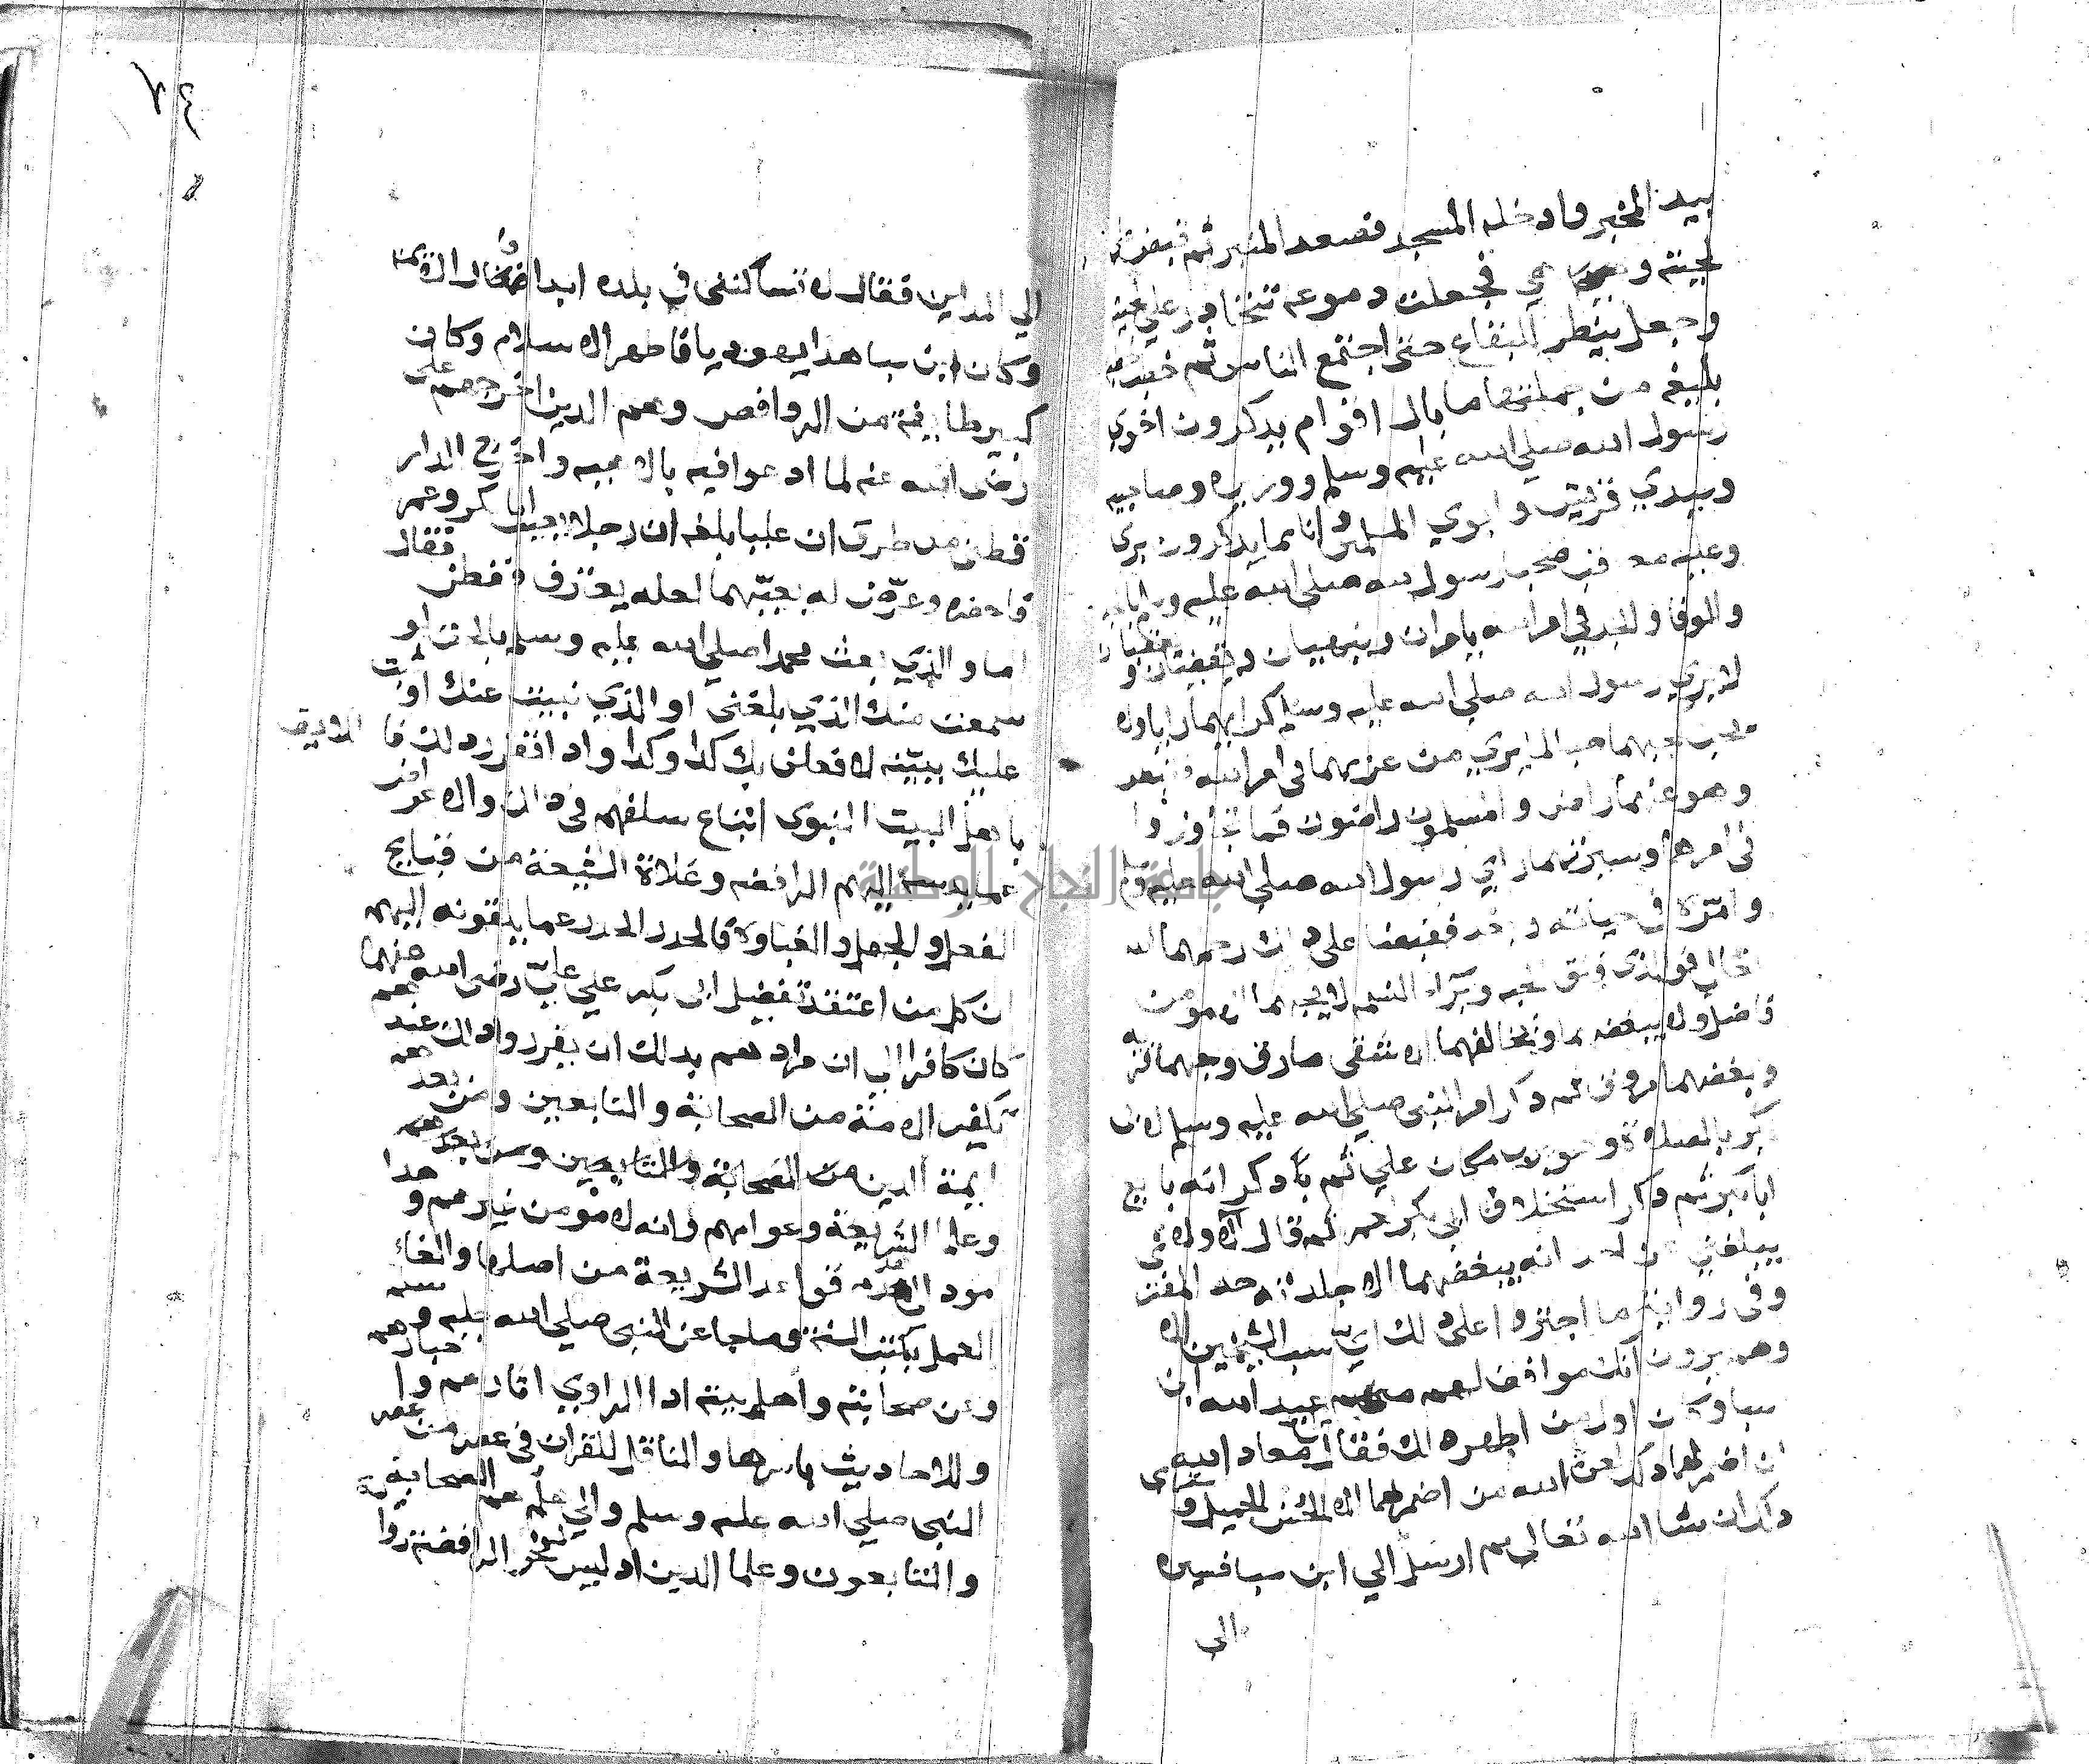 بيد المخبر وادخله المسجد فصعد المنبر ثم قبض على
لحيته وهي بيضا فجعلت دموعه تتحادر على لحيته
وجعل ينظر البقاع حتى اجتمع الناس ثم خطب خطبة
بليغه من جملتها ما بال اقوام يذكرون اخوي
رسول الله صلي الله عليه وسلم ووزيره وصاحبيه
وسيدي قريش وابوي المسلمين وانا مما يذكرون بري
وعليه معاقب صحبا رسول الله صلى الله عليه وسلم بالجد
والوفا والجد في امر الله يامران وينهيان ويقضيان ويعاقبان
لا يري رسول الله صلي الله عليه وسلم كرايهما رايا ولا
يحب كحبهما حبا لما يري من عزمهما في امر الله فقبض
وهو عنهما راض والمسلمون راضون فما تجاوزوا
في امرهما وسيرتهما راي رسول الله صلى الله عليه وسلم
وامره في حياته وبعده فقبضا على ذلك رحمهما الله
فوالذي فلق الحبه وبرا النسمه لا يحبهما الا مومن
فاضل ولا يبغضهما ويخالفهما الا شقي مارق وحبهما قربه
وبغضهما مروق ثم ذكر امر النبي صلى الله عليه وسلم لابي
بكر بالصلاة وهو يرى مكان علي ثم ذكر انه بايع
ابابكر ثم ذكر استخلاف ابي بكر لعمر ثم قال الا ولا
يبلغني عن احد انه يبغضهما الا جلدته حد المفتر
وفي رواية ما اجترو اعلى ذلك اي سب الشيخين الا
وهم يرون انك موافق لهم منهم عبد الله ابن
سبا وكان اول من اظهر ذلك فقال علي معاذ الله
ان اضمر لهما ذلك لعن الله من اضمر لهما الا الحسن الجميل وسترى
ذلك ان شا الله تعالى ثم ارسل الي ابن سبا فسيره
الى
٧٤
الي المداين فقال لا تساكنني في بلده ابدا قال الائمة
وكان ابن سبا هذا يهوديا فاظهر الاسلام وكان
كبير طايفة من الروافض وهم الذين اخرجهم علي
رضي الله عنه لما ادعوا فيه بالالهيه واخرج الدار
قطني من طرق ان عليا بلغه ان رجلا يعيب ابابكر وعمر
فاحضره وعرّض له بعيبهما لعله يعترف ففطن فقال
اما والذي بعث محمدا صلي الله عليه وسلم بالحق لو
سمعت منك الذي بلغني او الذي نبيت عنك او ثبت
عليك ببيّنه لافعلن بك كذا وكذا واذا تقرر ذلك فا اللايق
باهل البيت النبوي اتباع سلفهم في ذلك والاعراض
عما يدسه اليهم الرافضه وغلاة الشيعة من قبايح
الفعل والجهل والغباوة فالحذر الحذر عما يلقونه اليهم
ان كل من اعتقد تفضيل ابى بكر علي عليّ رضى الله عنهما
كان كافرا لان مرادهم بذلك ان يقرروا ذلك عندهم
تكفير الامة من الصحابة والتابعين ومن بعدهم
ايمة الدين من الصحابة والتابعين ومن بعدهم
وعلما الشريعة وعوامهم وانه لا مومن غيرهم وهذا
مود الى هدم قواعد الشريعة من اصلها والغاء
العمل بكتب السنة وما جا عن النبي صلي الله عليه وسلم
وعن صحابته واهل بيته اذ الراوي اثارهم واخبارهم
وللاحاديث باسرها والناقل للقران في كل عصر من عصر
النبي صلي الله عليه وسلم والي هلم هم الصحابة
والتابعون وعلما الدين اذ ليس لنحو الرافضة روا ية